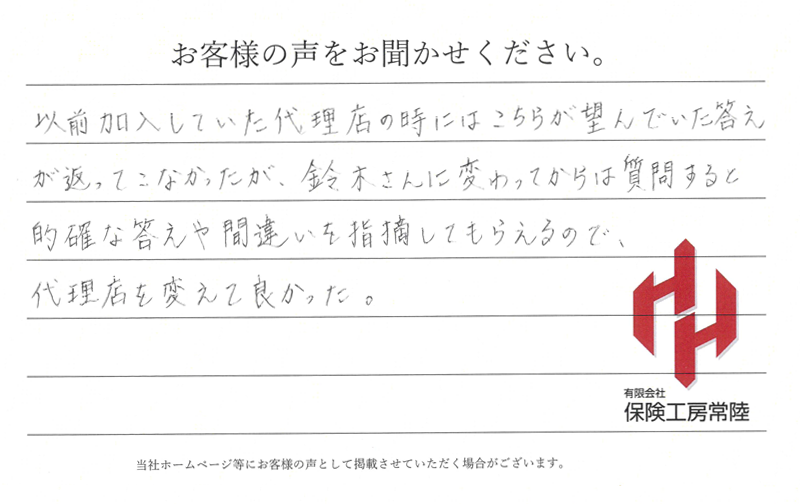 お客様の声をお聞かせください。
以前加入していた代理店の時にはこちらが望んでいた答え
が返ってこなかったが、鈴木さんに変わってからは質問すると
的確な答えや間違いを指摘してもらえるので、
代理店を変えて良かった。
有限会社
保険工房常陸
当社ホームページ等にお客様の声として掲載させていただく場合がございます。